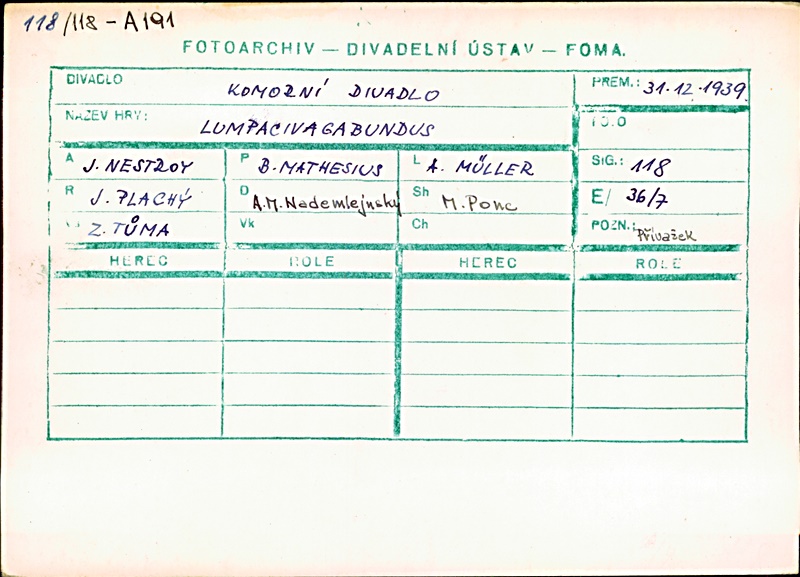 118/118 - A191
FOTOARCHIV — DIVADELNÍ ÚSTAV — FOMA.
DIVADLO KOMORNÍ DIVADLO PREM.: 31.12.1939
NÁZEV HRY: LUMPACIVAGABUNDUS
A J. NESTROY P B. MATHESIUS L A. MÜLLER SIG.: 118
R J. PLACHÝ D A.M. Nademlejnský Sh M. Ponc E/ 36/7
Z. TŮMA Vk Ch POZN.: Přívažek
HEREC ROLE HEREC ROLE